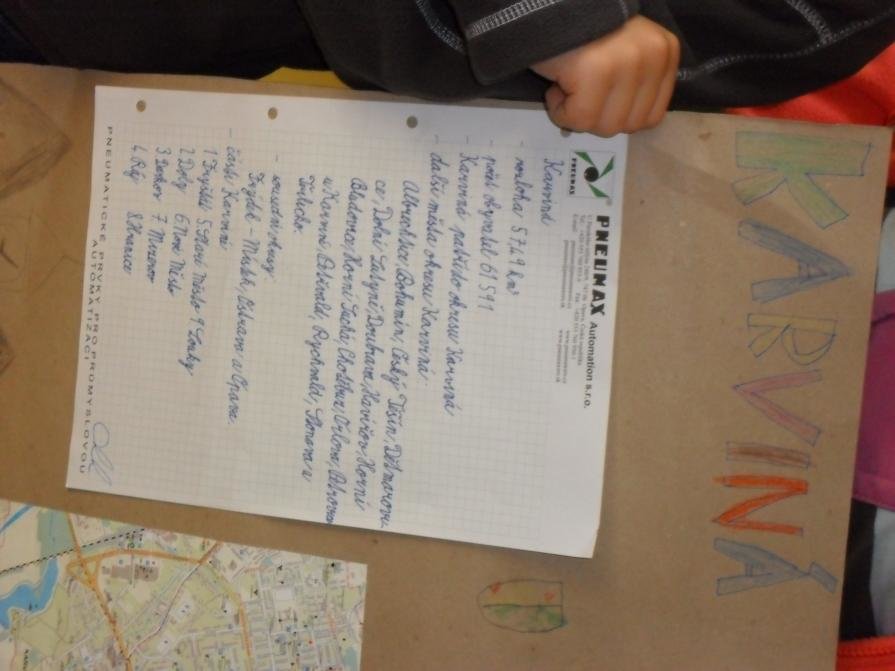 KARVINÁ
PNEUMAX Automation s.r.o.
PNEUMAX
Karviná
- rozloha 57,49 km²
- počet obyvatel 61 591
- Karviná patří do okresu Karviná
- další města okresu Karviná:
Albrechtice, Bohumín, Český Těšín, Dětmarovi
ce, Dolní Lutyně, Doubrava, Havířov, Horní
Bludovice, Horní Suchá, Chotěbuz, Orlová, Petrovice
u Karviné, Petřvald, Rychvald, Stonava a
Těrlicko.
- sousední okresy:
Frýdek - Místek, Ostrava a Opava.
- části Karviné
1 Fryštát 5. Staré Město 9 Louky
2 Doly 6 Nové Město
3 Darkov 7 Mizerov
4. Ráj 8 Hranice
PNEUMATICKÉ PRVKY PRO PRŮMYSLOVOU
AUTOMATIZACI